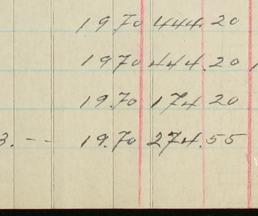 19.70 444.20
1970 444.20
19.70 174 20
3. -- 19.70 274.55